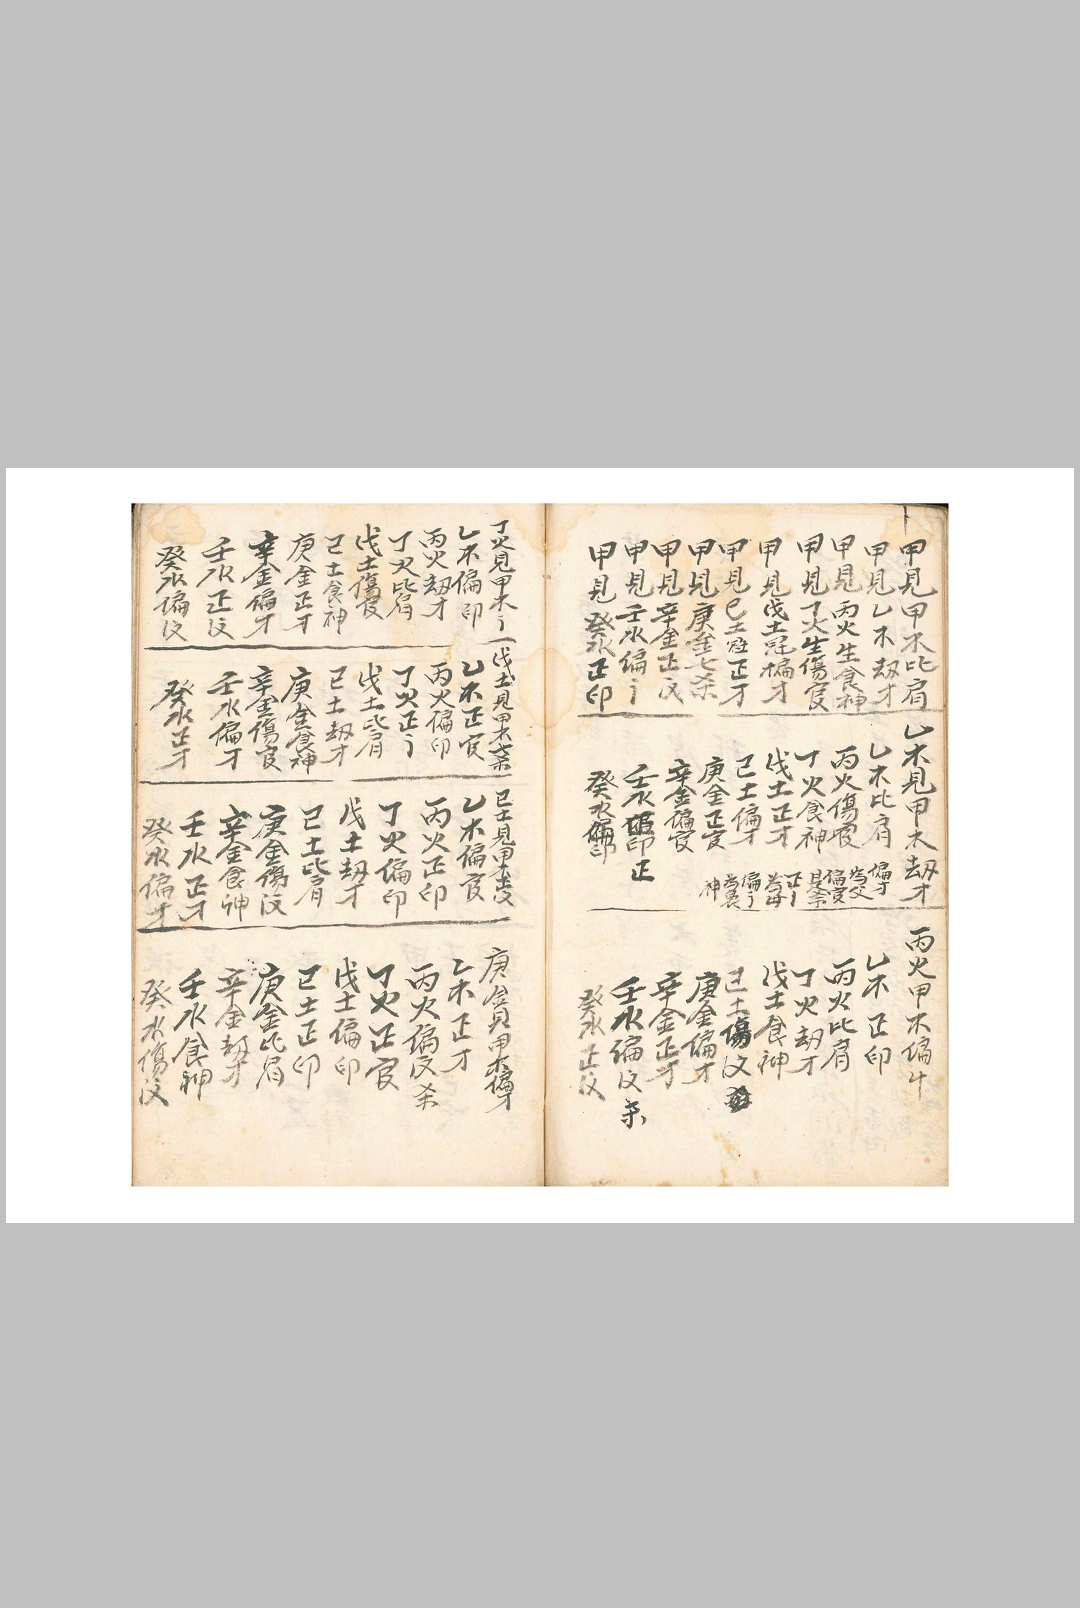 甲見甲木比肩
甲見乙木刼才
甲見丙火生食神
甲見丁火生傷官
甲見戊土 偏才
甲見己土 正才
甲見庚金七杀
甲見辛金正
甲見壬水偏
甲見癸水正印
乙木見甲木刼才
乙木比肩
丙火傷官
丁火食神
戊土正才
己土偏才
庚金正官
辛金偏官
壬水 印正
癸水偏印
偏才
為父
偏官
是杀
正
為母
偏
為
神
丙火甲木偏
乙木正印
丙火比肩
丁火刼才
戊土食神
己土傷
庚金偏才
辛金正才
壬水偏 杀
癸水正
丁火見甲木
乙木偏印
丙火刼才
丁火比肩
戊土傷官
己土食神
庚金正才
辛金偏才
壬水正
癸水偏
戊土見甲木七杀
乙木正官
丙火偏印
丁火正
戊土比肩
己土刼才
庚金食神
辛金傷官
壬水偏才
癸水正才
己土見甲木
乙木偏官
丙火正印
丁火偏印
戊土刼才
己土比肩
庚金傷
辛金食神
壬水正才
癸水偏才
庚金見甲木偏才
乙木正才
丙火偏 杀
丁火正官
戊土偏印
己土正印
庚金比肩
辛金刼才
壬水食神
癸水傷